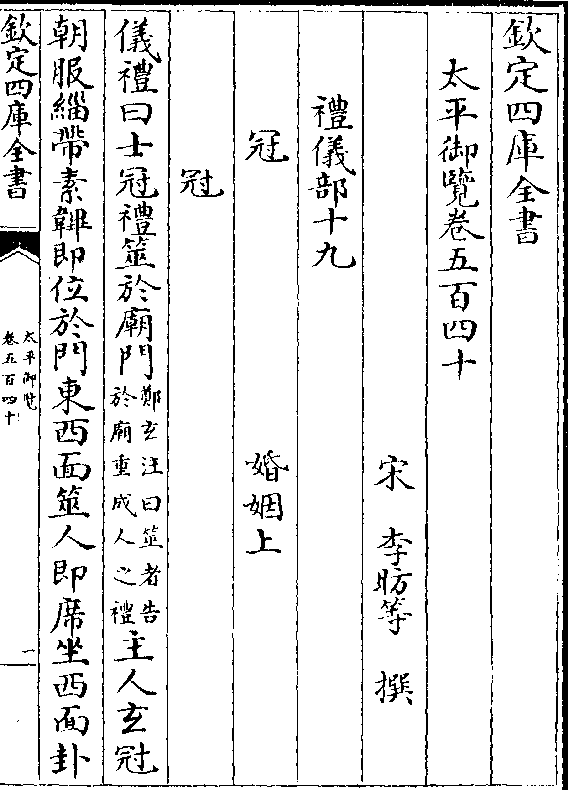 欽定四庫全書
太平御覽卷五百四十
宋 李昉等 撰
禮儀部十九
冠 婚姻上
冠
儀禮曰士冠禮筮於廟門
鄭玄注曰筮者告
於廟重成人之禮
主人玄冠
朝服緇帶素韠即位於門東西面筮人即席坐西面卦
欽定四庫全書
太平御覽
卷五百四十
一